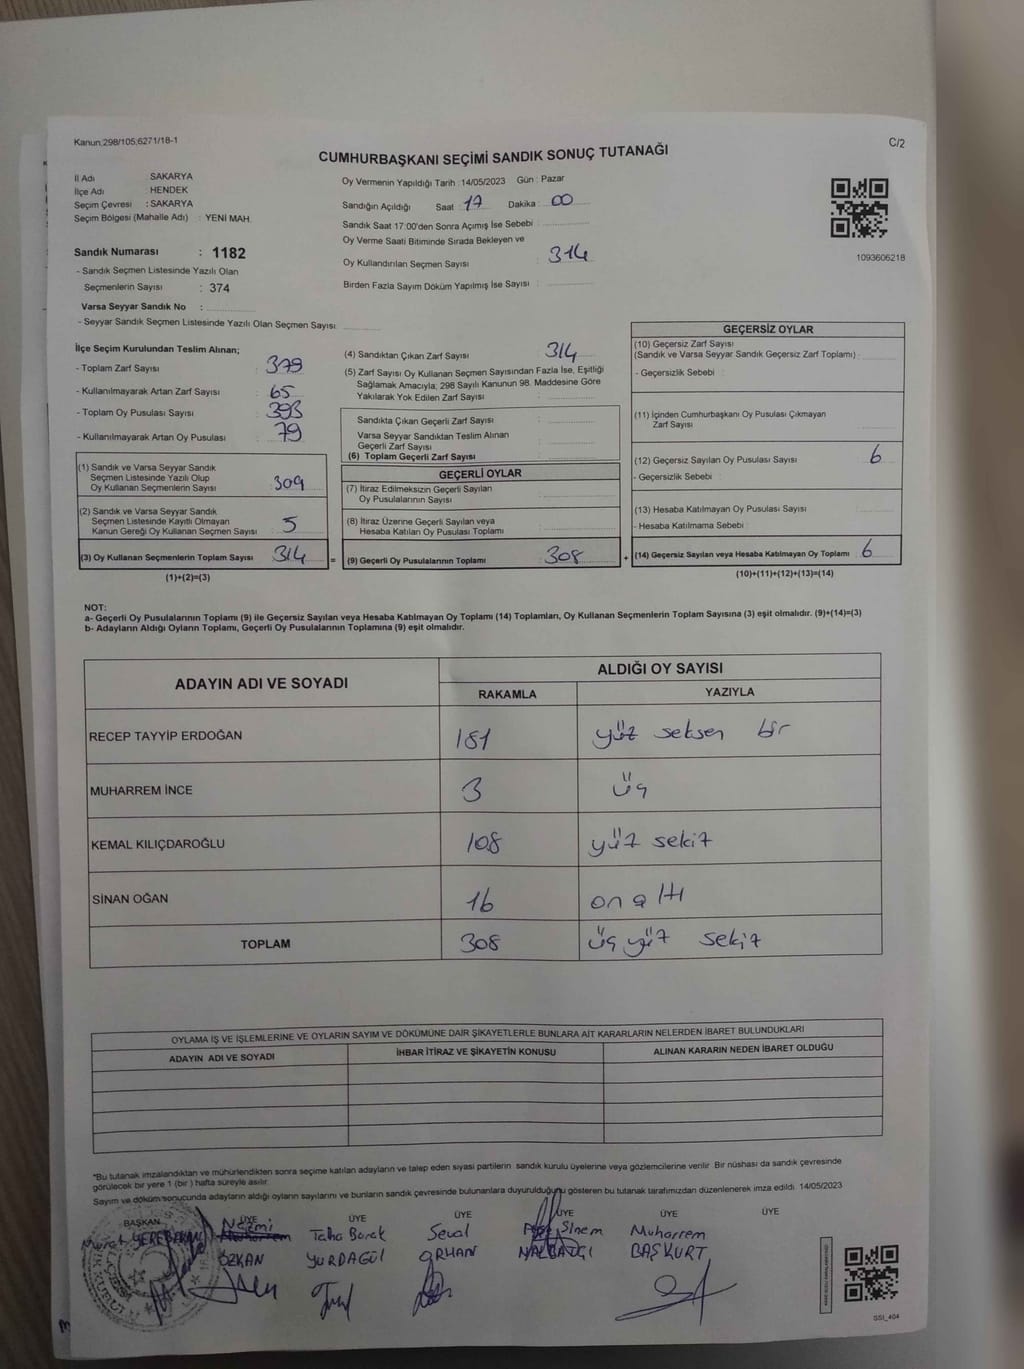 Kanun;298/105;6271/18-1
C/2
CUMHURBAŞKANI SEÇİMİ SANDIK SONUÇ TUTANAĞI
İl Adı : SAKARYA
İlçe Adı : HENDEK
Seçim Çevresi : SAKARYA
Seçim Bölgesi (Mahalle Adı) : YENİ MAH.
Sandık Numarası : 1182
- Sandık Seçmen Listesinde Yazılı Olan
Seçmenlerin Sayısı : 374
Varsa Seyyar Sandık No :
- Seyyar Sandık Seçmen Listesinde Yazılı Olan Seçmen Sayısı
Oy Vermenin Yapıldığı Tarih : 14/05/2023 Gün : Pazar
Sandığın Açıldığı Saat : 17 Dakika : 00
Sandık Saat 17:00'den Sonra Açımış İse Sebebi :
Oy Verme Saati Bitiminde Sırada Bekleyen ve
Oy Kullandırılan Seçmen Sayısı : 314
Birden Fazla Sayım Döküm Yapılmış İse Sayısı :
1093606218
İlçe Seçim Kurulundan Teslim Alınan;
- Toplam Zarf Sayısı : 379
- Kullanılmayarak Artan Zarf Sayısı : 65
- Toplam Oy Pusulası Sayısı : 393
- Kullanılmayarak Artan Oy Pusulası : 79
(1) Sandık ve Varsa Seyyar Sandık
Seçmen Listesinde Yazılı Olup
Oy Kullanan Seçmenlerin Sayısı 309
(2) Sandık ve Varsa Seyyar Sandık
Seçmen Listesinde Kayıtlı Olmayan
Kanun Gereği Oy Kullanan Seçmen Sayısı 5
(3) Oy Kullanan Seçmenlerin Toplam Sayısı 314 =
(1)+(2)=(3)
(4) Sandıktan Çıkan Zarf Sayısı 314
(5) Zarf Sayısı Oy Kullanan Seçmen Sayısından Fazla İse, Eşitliği
Sağlamak Amacıyla; 298 Sayılı Kanunun 98. Maddesine Göre
Yakılarak Yok Edilen Zarf Sayısı :
Sandıkta Çıkan Geçerli Zarf Sayısı :
Varsa Seyyar Sandıktan Teslim Alınan
Geçerli Zarf Sayısı :
(6) Toplam Geçerli Zarf Sayısı :
GEÇERLİ OYLAR
(7) İtiraz Edilmeksizin Geçerli Sayılan
Oy Pusulalarının Sayısı :
(8) İtiraz Üzerine Geçerli Sayılan veya
Hesaba Katılan Oy Pusulası Toplamı :
(9) Geçerli Oy Pusulalarının Toplamı 308 +
GEÇERSİZ OYLAR
(10) Geçersiz Zarf Sayısı
(Sandık ve Varsa Seyyar Sandık Geçersiz Zarf Toplamı) :
- Geçersizlik Sebebi :
(11) İçinden Cumhurbaşkanı Oy Pusulası Çıkmayan
Zarf Sayısı :
(12) Geçersiz Sayılan Oy Pusulası Sayısı : 6
- Geçersizlik Sebebi :
(13) Hesaba Katılmayan Oy Pusulası Sayısı :
- Hesaba Katılmama Sebebi :
(14) Geçersiz Sayılan veya Hesaba Katılmayan Oy Toplamı : 6
(10)+(11)+(12)+(13)=(14)
NOT:
a- Geçerli Oy Pusulalarının Toplamı (9) ile Geçersiz Sayılan veya Hesaba Katılmayan Oy Toplamı (14) Toplamları, Oy Kullanan Seçmenlerin Toplam Sayısına (3) eşit olmalıdır. (9)+(14)=(3)
b- Adayların Aldığı Oyların Toplamı, Geçerli Oy Pusulalarının Toplamına (9) eşit olmalıdır.
ADAYIN ADI VE SOYADI
ALDIĞI OY SAYISI
RAKAMLA YAZIYLA
RECEP TAYYİP ERDOĞAN 181 yüz seksen bir
MUHARREM İNCE 3 üç
KEMAL KILIÇDAROĞLU 108 yüz sekiz
SİNAN OĞAN 16 on altı
TOPLAM 308 üç yüz sekiz
OYLAMA İŞ VE İŞLEMLERİNE VE OYLARIN SAYIM VE DÖKÜMÜNE DAİR ŞİKAYETLERLE BUNLARA AİT KARARLARIN NELERDEN İBARET BULUNDUKLARI
ADAYIN ADI VE SOYADI İHBAR İTİRAZ VE ŞİKAYETİN KONUSU ALINAN KARARIN NEDEN İBARET OLDUĞU
*Bu tutanak imzalandıktan ve mühürlendikten sonra seçime katılan adayların ve talep eden siyasi partilerin sandık kurulu üyelerine veya gözlemcilerine verilir. Bir nüshası da sandık çevresinde
görülecek bir yere 1 (bir ) hafta süreyle asılır.
Sayım ve döküm sonucunda adayların aldığı oyların sayılarını ve bunların sandık çevresinde bulunanlara duyurulduğunu gösteren bu tutanak tarafımızdan düzenlenerek imza edildi. 14/05/2023
BAŞKAN ÜYE ÜYE ÜYE ÜYE ÜYE ÜYE
Taha Burak Seval Sinem Muharrem
ÖZKAN YURDAGÜL ORHAN NALBATÇI BAŞKURT
SSI_404